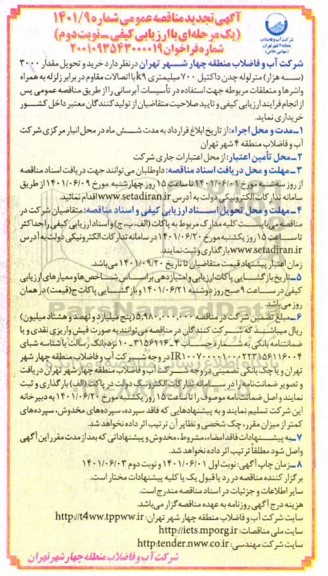 آگهی تجدید مناقصه عمومی شماره ۱۴۰۱/۹
(یک مرحله‌ای با ارزیابی کیفی - نوبت دوم)
شماره فراخوان ۲۰۰۱۰۹۳۵۴۳۰۰۰۰۱۹
شرکت آب و فاضلاب منطقه ۴ شهر تهران
(سهامی خاص)
شرکت آب و فاضلاب منطقه چهار شهر تهران در نظر دارد خرید و تحویل مقدار ۳۰۰۰
(سه هزار) متر لوله چدن داکتیل ۷۰۰ میلیمتری k۹ با اتصالات مقاوم در برابر زلزله به همراه
واشر ها و متعلقات مربوطه جهت استفاده در تأسیسات آبرسانی را از طریق مناقصه عمومی پس
از انجام فرایند ارزیابی کیفی و تایید صلاحیت متقاضیان از تولیدکنندگان معتبر داخل کشور
خریداری نماید.
۱- مدت و محل اجراء: از تاریخ ابلاغ قرارداد به مدت شش ماه در محل انبار مرکزی شرکت
آب و فاضلاب منطقه ۴ شهر تهران
۲- محل تأمین اعتبار: از محل اعتبارات جاری شرکت
۳- مهلت و محل دریافت اسناد مناقصه: داوطلبان می‌توانند جهت دریافت اسناد مناقصه
از روز سه‌شنبه مورخ ۱۴۰۱/۰۶/۰۱ تا ساعت ۱۵ روز چهارشنبه مورخ ۱۴۰۱/۰۶/۰۹ از طریق
سامانه تدارکات الکترونیکی دولت به آدرس www.setadiran.ir اقدام نمایند.
۴- مهلت و محل تحویل اسناد ارزیابی کیفی و اسناد مناقصه: متقاضیان شرکت در
مناقصه می‌بایست کلیه مدارک مربوط به پاکات (الف، ب، ج) و اسناد ارزیابی کیفی را حداکثر
تا ساعت ۱۵ روز یکشنبه مورخ ۱۴۰۱/۰۶/۲۰ در سامانه تدارکات الکترونیکی دولت به آدرس
www.setadiran.ir بارگذاری و ثبت نمایند.
زمان اعتبار پیشنهاد قیمت متقاضیان تا تاریخ ۱۴۰۱/۰۹/۲۰ می‌باشد.
۵- تاریخ بازگشایی پاکات ارزیابی و امتیازدهی براساس شاخص‌ها و معیارهای ارزیابی
کیفی در ساعت ۹ صبح روز دوشنبه ۱۴۰۱/۰۶/۲۱ و بازگشایی پاکات ج (قیمت) در همان
روز می‌باشد.
۶- مبلغ تضمین شرکت در مناقصه ۵,۹۸۰,۰۰۰,۰۰۰ (پنج میلیارد و نهصد و هشتاد میلیون)
ریال میباشد که شرکت کنندگان در مناقصه می‌توانند به صورت فیش واریزی نقدی و یا
ضمانتنامه بانکی به شماره حساب نزد بانک رسالت یا شناسه شبای
در وجه شرکت آب و فاضلاب منطقه چهار شهر
تهران و یا چک بانکی تضمینی در وجه شرکت آب و فاضلاب منطقه چهار شهر تهران دریافت
و تصویر ضمانت‌نامه را در سامانه تدارکات الکترونیک دولت در پاکت (الف) بارگذاری و ثبت
نمایند و اصل ضمانتنامه موصوف را تا ساعت ۱۵ روز یکشنبه مورخ ۱۴۰۱/۰۶/۲۰ به دبیرخانه
این شرکت تسلیم نمایند و به پیشنهادهایی که فاقد سپرده، سپرده‌های مخدوش، سپرده‌های
کمتر از میزان مقرر، چک شخصی و نظایر آن ترتیب اثر داده نخواهد شد.
۷- به پیشنهادات فاقد امضاء، مشروط، مخدوش و پیشنهاداتی که بعد از مدت مقرر این آگهی
واصل شود مطلقاً ترتیب اثر داده نخواهد شد.
۸- زمان چاپ آگهی: نوبت اول ۱۴۰۱/۰۶/۰۱ و نوبت دوم ۱۴۰۱/۰۶/۰۳
برگزار کننده مناقصه در رد یا قبول یک یا کلیه پیشنهادات مختار است.
سایر اطلاعات و جزئیات در اسناد مناقصه مندرج است.
هزینه درج آگهی روزنامه به عهده مناقصه گزار می‌باشد.
سایت شرکت آب و فاضلاب منطقه چهار شهر تهران: http://t4ww.tppww.ir
سایت ملی مناقصات: http://iets.mporg.ir
سایت شرکت مهندسی: http:tender.nww.co.ir
شرکت آب و فاضلاب منطقه چهار شهر تهران